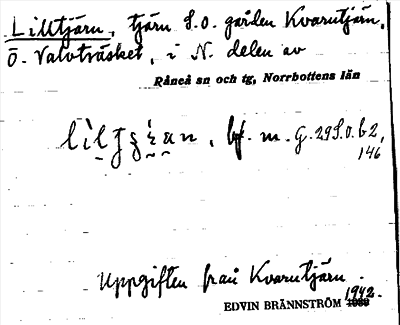 Lilltjärn, tjärn S.O. gården Kvarntjärn,
Ö. Valvträsket, i N. delen av
Råneå sn och tg, Norrbottens län
bf. m. G. 29 S.O. b 2,
146
Uppgiften från Kvarntjärn.
1942.
EDVIN BRÄNNSTRÖM